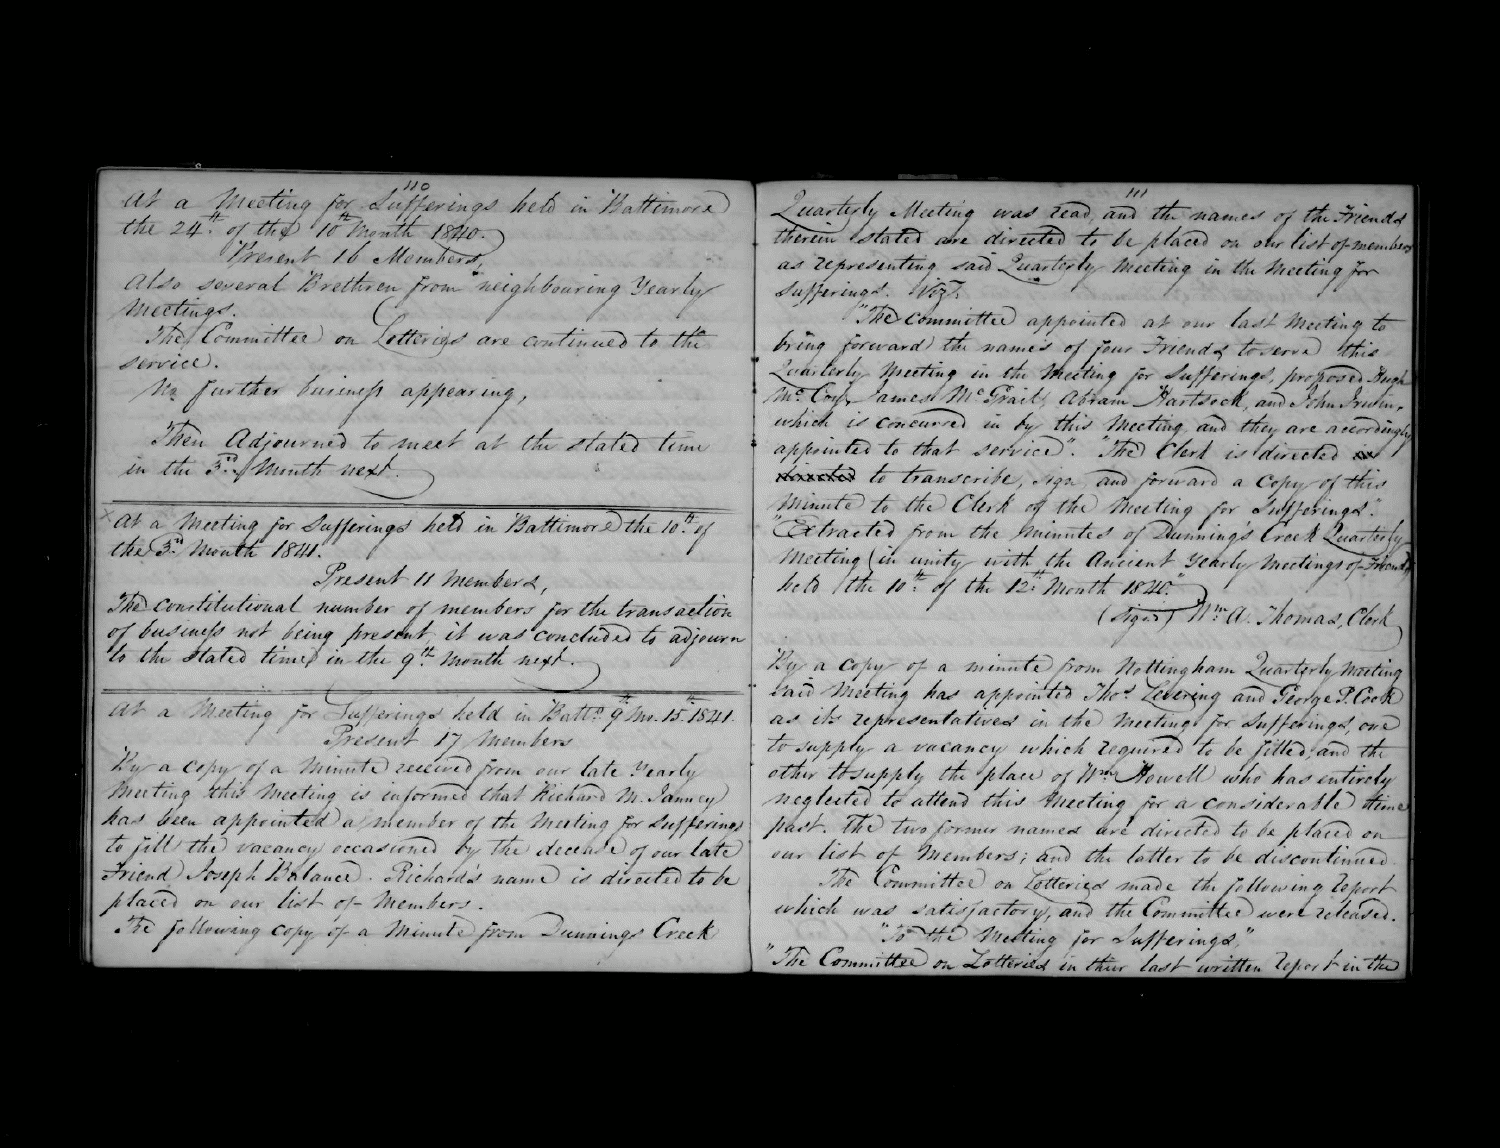 110
At a Meeting for Sufferings held in Baltimore
the 24th. of the 10th Month 1840.
Present 16 Members,
Also several Brethren from neighbouring Yearly
Meetings.
The Committee on Lotteries are continued to the
service.
No further business appearing,
Then Adjourned to meet at the stated time
in the 3rd. Month next.
At a Meeting for Sufferings held in Baltimore the 10th. of
the 3rd. Month 1841.
Present 11 Members,
The constitutional number of members for the transaction
of business not being present, it was concluded to adjourn
to the stated time in the 9th. Month next.
At a Meeting for Sufferings held in Balto. 9th Mo. 15th 1841.
Present 17 Members
By a copy of a Minute received from our late Yearly
Meeting this Meeting is informed that Richard M. Janney
has been appointed a member of the Meeting for Sufferings
to fill the vacancy occasioned by the decease of our late
Friend Joseph Balance. Richard's name is directed to be
placed on our list of Members.
The following copy of a Minute from Dunnings Creek
111
Quarterly Meeting was read, and the names of the Friends
therein stated are directed to be placed on our list of members
as representing said Quarterly Meeting in the Meeting for
Sufferings. Vizt.
"The Committee appointed at our last Meeting to
bring forward the names of four Friends to serve this
Quarterly Meeting in the Meeting for Sufferings, proposed Hugh
Mc. Coy, James McGrail, Abram Hartsock, and John Irwin,
which is concurred in by this Meeting and they are accordingly
appointed to that service". "The Clerk is directed
directed to transcribe, sign, and forward a copy of this
Minute to the Clerk of the Meeting for Sufferings".
"Extracted from the minutes of Dunning's Creek Quarterly
Meeting (in unity with the Ancient Yearly Meetings of Friends)
held the 10th. of the 12th. Month 1840."
(Signd) Wm A. Thomas, Clerk
By a copy of a minute from Nottingham Quarterly Meeting
said Meeting has appointed Thos. Levering and George P. Cook
as its representatives in the Meeting for Sufferings, one
to supply a vacancy which required to be filled, and the
other to supply the place of Wm Howell who has entirely
neglected to attend this Meeting for a considerable time
past. The two former names are directed to be placed on
our list of Members; and the latter to be discontinued.
The Committee on Lotteries made the following report
which was satisfactory, and the Committee were released.
"To the Meeting for Sufferings,"
"The Committee on Lotteries in their last written report in the